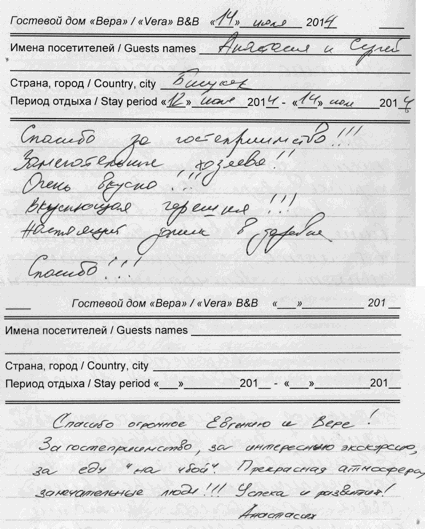 Гостевой дом «Вера» / «Vera» B&B «14» июля 2014
Имена посетителей / Guests names Анастасия и Сергей
Страна, город / Country, city Бишкек
Период отдыха / Stay period «12» июля 2014 - «14» июл 2014
Спасибо за гостеприимство!!!
Замечательные хозяева!!
Очень вкусно!!!
Вкуснющая черешня!!!
Настоящий домик в деревне
Спасибо!!!
Гостевой дом «Вера» / «Vera» B&B «__»________ 201__
Имена посетителей / Guests names
Страна, город / Country, city
Период отдыха / Stay period «__»________201__ - «__»________201__
Спасибо огромное Евгению и Вере!
За гостеприимство, за интересную экскурсию,
за еду "на убой". Прекрасная атмосфера,
замечательные люди!!! Успеха и развития!
Анастасия